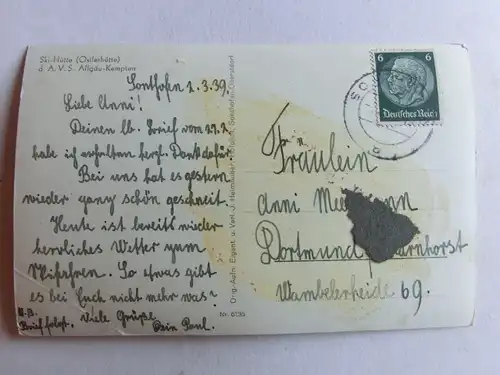 Ski-Hütte (Ostlerhütte)
d. A. V. S. Allgäu-Kempten
Sonthofen 2.3.39.
Liebe Anni!
Deinen lb. Brief vom
habe ich erhalten herzl. Dank dafür.
Bei uns hat es gestern
wieder ganz schön geschneit.
Heute ist bereits wieder
herrliches Wetter zum
Skifahren. So etwas gibt
es bei Euch nicht mehr was?
N.B.
Brief folgt.
Viele Grüße
Dein Paul.
Orig.-Aufn. Eigent. u. Verl. J. Heimhuber
Nr. 6130
6
6
Deutsches Reich
SO
Fräulein
Anni
Dortmund
Wambelerheide 69.